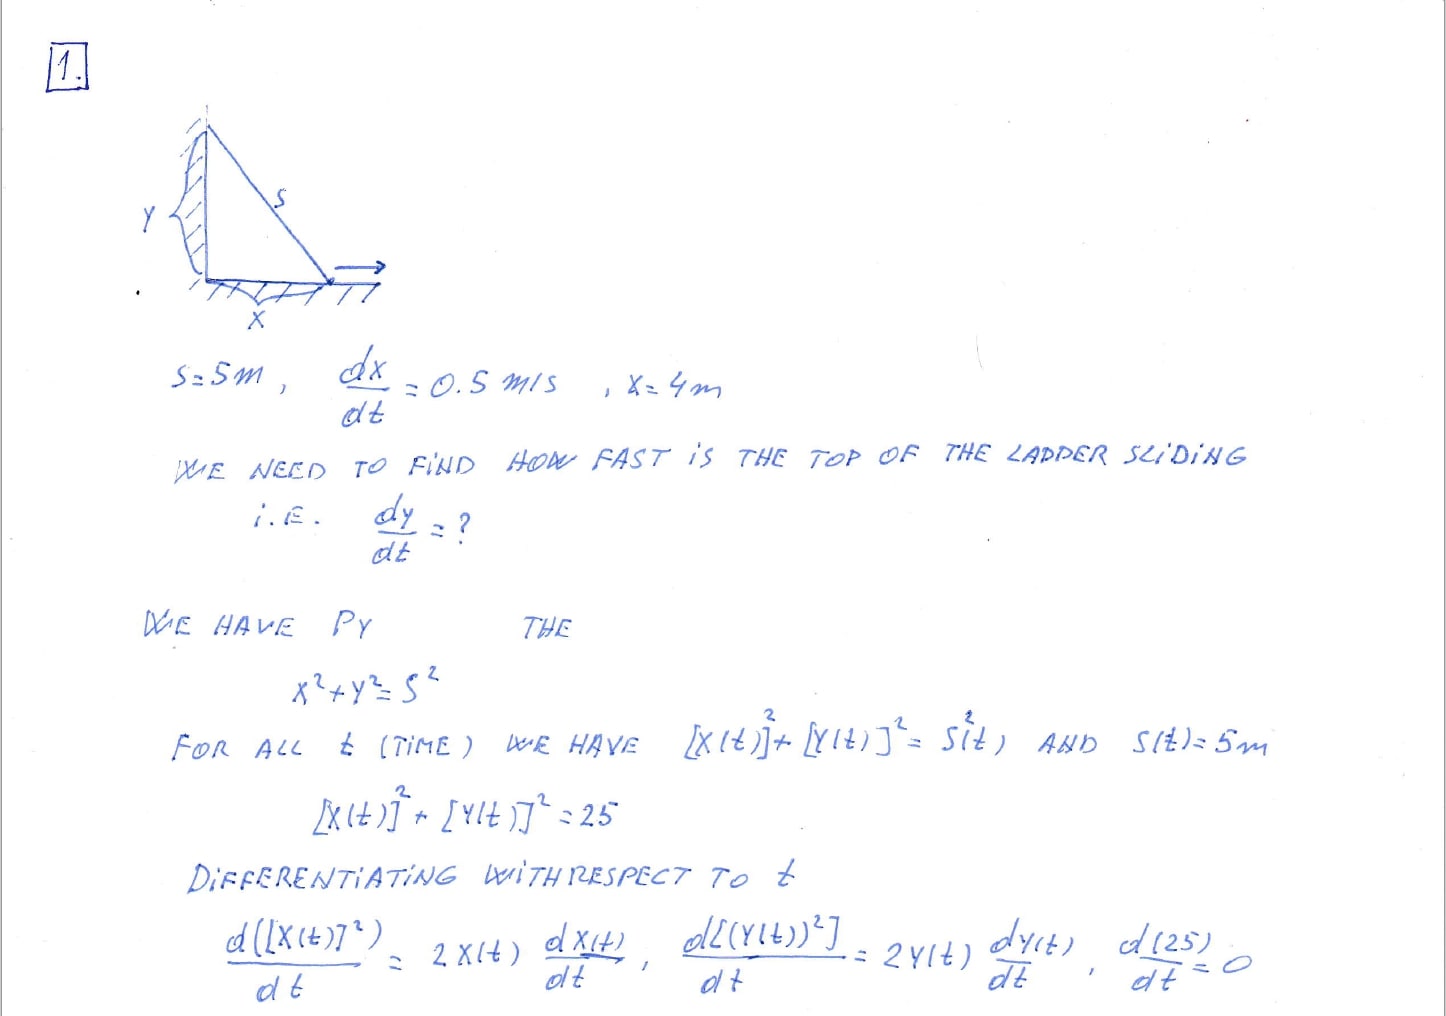 1.
Y
S
X
S=5m, dx/dt = 0.5 m/s, X=4m
WE NEED TO FIND HOW FAST IS THE TOP OF THE LADDER SLIDING
i.E. dy/dt = ?
WE HAVE PY THE
X²+Y²=S²
FOR ALL t (TIME) WE HAVE [X(t)]²+[Y(t)]²=S²(t) AND S(t)=5m
[X(t)]²+[Y(t)]²=25
DIFFERENTIATING WITH RESPECT TO t
d([X(t)]²)/dt = 2X(t) dX(t)/dt, d[(Y(t))²]/dt = 2Y(t) dy(t)/dt, d(25)/dt = 0